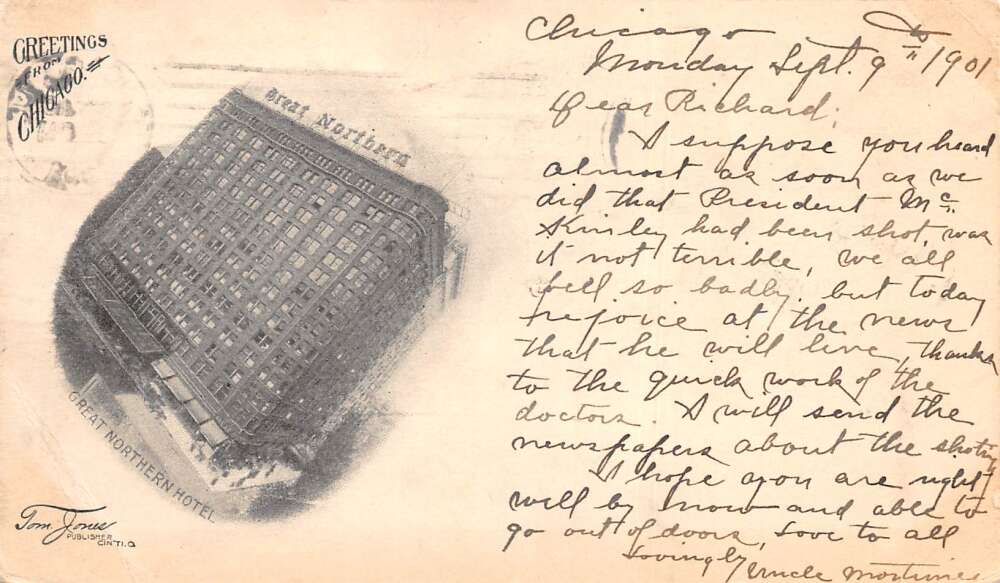 GREETINGS
FROM
CHICAGO.
Great Northern
GREAT NORTHERN HOTEL
Tom. Jones
PUBLISHER
CINTI. O
Chicago
Monday Sept. 9th 1901
Dear Richard;
I suppose you heard
almost as soon as we
did that President Mc
Kinley had been shot, was
it not terrible, we all
feel so badly. but today
rejoice at the news
that he will live, thanks
to the quick work of the
doctors. I will send the
newspapers about the shotng
I hope you are right
well by now and able to
go out of doors, Love to all
Lovingly
Uncle Mortimer